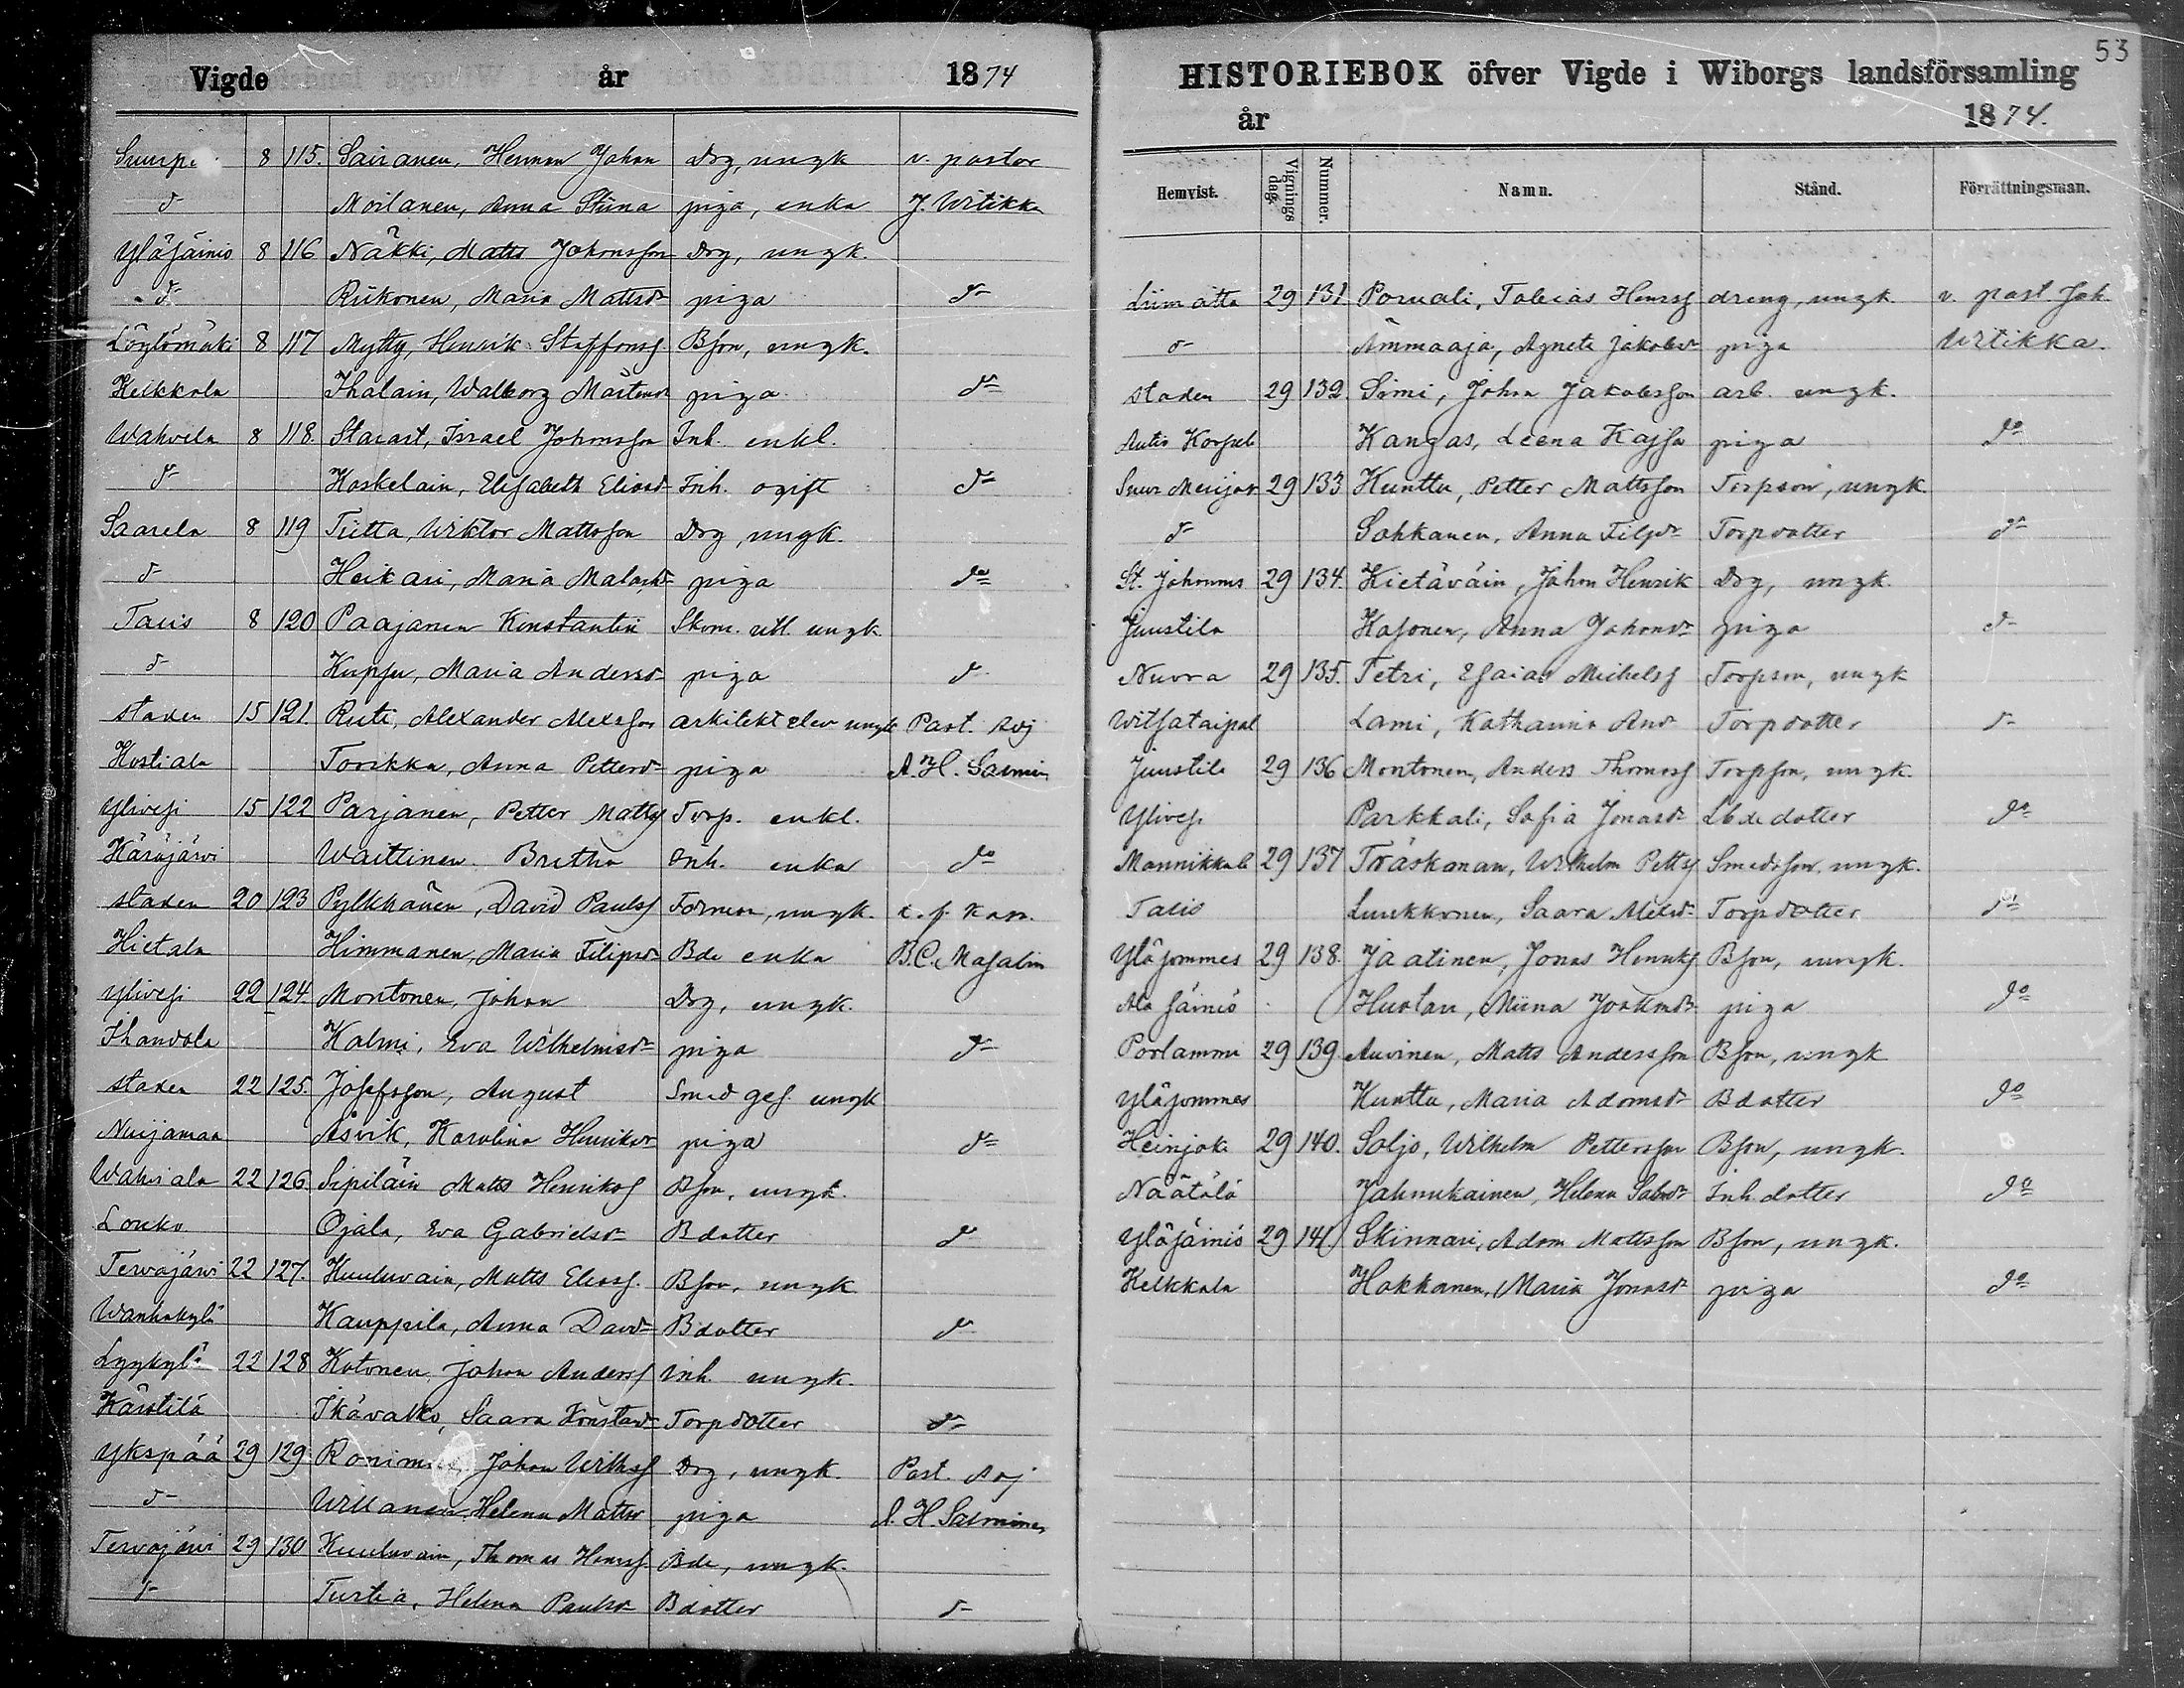 Vigde år 1874
8 115. Sairanen, Herman Johan Drg, ungk v. pastor
d- Moilanen, Anna Stiina piga, enka J. Witikka
Yläsäinio 8 116 Näkki, Matts Johansson Drg, ungk.
d- Riikonen, Maria Mattsdr piga d-
Löytömäki 8 117 Mytty, Henrik Staffanss Bson, ungk.
Kelkkala Ihalain, Walborg Mårtensdr piga do
Wahvela 8 118. Starast, Israel Johansson Inh. enkl.
d- Koskelain, Elisabeth Eliasd Inh. ogift do
Saarela 8 119 Tiitta, Wiktor Mattsson Drg, ungk.
d- Heikari, Maria piga do
8 120 Paajanen Konstantin ungk
d- Maria Andersd piga d-
staden 15 121 Ruti, Alexander Alexsson arkitekt elev ungk Past. Adj
Kostiala Torikka, Anna Pettersd piga A. H. Salmin
Ylivesi 15 122 Parjanen, Petter Mattss Torp. enkl.
Käräjärvi Waittinen Bretha Inh. enka do
staden 20 123 Pylkkänen, David Paulss Forman, ungk. kap.
Hietala Himmanen, Maria Filipsd Bde enka B.C. Masalin
Ylivesi 22 124 Montonen, Johan Drg, ungk.
Ihandala Kalmi, Eva Wilhelmsd piga d-
staden 22 125. Josefsson, August Smed ges. ungk
Nuijamaa Åsvik, Karolina Henriksd piga do
Wahviala 22 126 Sipiläin Matts Henrikss Bson, ungk.
Louko Ojala, Eva Gabrielsd Bdotter d-
Tervajärvi 22 127. Kuuluvain, Matts Eliass. Bson, ungk
Wanhakylä Kauppila, Anna Davd Bdotter d-
Lyykylä 22 128 Kotonen, Johan Anderss Inh. ungk.
Kärstilä Ikävalko, Saara Konstand Torpdotter do
Ykspää 29 129 Johan Wilhss Drg, ungk. Past. Adj
d- Willanen, Helena Mattsd piga A. H. Salminen
Tervajärvi 29 130 Kuuluvain, Thomas Henrss. Bde, ungk.
d- Turtia, Helena Paulsd Bdotter d-
53
HISTORIEBOK öfver Vigde i Wiborgs landsförsamling
år 1874.
Hemvist. Vignings dag. Nummer. Namn. Stånd. Förrättningsman.
Liimatta 29 131 Poruali, Tobias Henrss dreng, ungk v. past. Joh.
d- Ämmaaja, Agneta Jakobsd piga Witikka.
staden 29 132. Simi, Johan Jakobsson arb. ungk.
Kangas, Leena Kajsa piga do
29 133 Hunttu, Petter Mattsson Torpson, ungk.
d- Sahkanen, Anna Filpd Torpdotter do
St. Johannes 29 134. Kietäväin, Johan Henrik Drg, ungk.
Juustila Kasonen, Anna Johansd piga d-
Nuora 29 135. Tetri, Esaias Michelss Torpson, ungk
Witsataipal Lami, Katharina And Torpdotter d-
Juustila 29 136 Montonen, Anders Thomass Torpson, ungk.
Ylivesi Parkkali, Sofia Jonasd Lbdedotter do
Mannikkala 29 137 Träskman, Wilhelm Petterss Smedsson, ungk.
Talis Luukkonen, Saara Torpdotter do
Yläsommes 29 138. Jaatinen, Jonas Henriks Bson, ungk.
Ala säiniö Hustari, Miina piga do
Porlammi 29 139 Auvinen, Matts Andersson Bson, ungk
Yläsommes Kunttu, Maria Adamsd Bdotter do
Heinjoki 29 140. Soljo, Wilhelm Pettersson Bson, ungk.
Näätälä Jahnukainen, Helena Inh. dotter do
Yläsäiniö 29 141 Skinnari, Adam Mattsson Bson, ungk.
Kelkkala Hakkanen, Maria Jonasd piga do